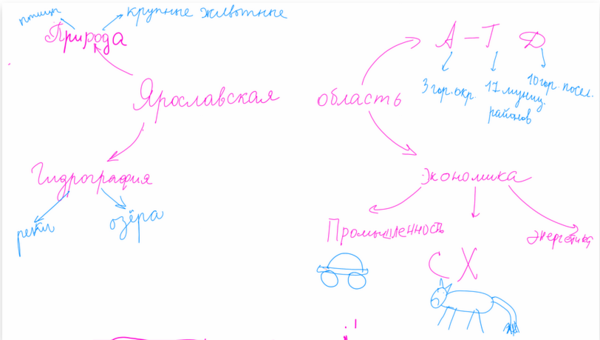 птицы
крупные животные
Природа
А – Т Д
3 гор. окр
17 муниц. районов
10 гор. посел.
Ярославская область
Гидрография
Экономика
реки
озёра
Промышленность
СХ
Энергетика